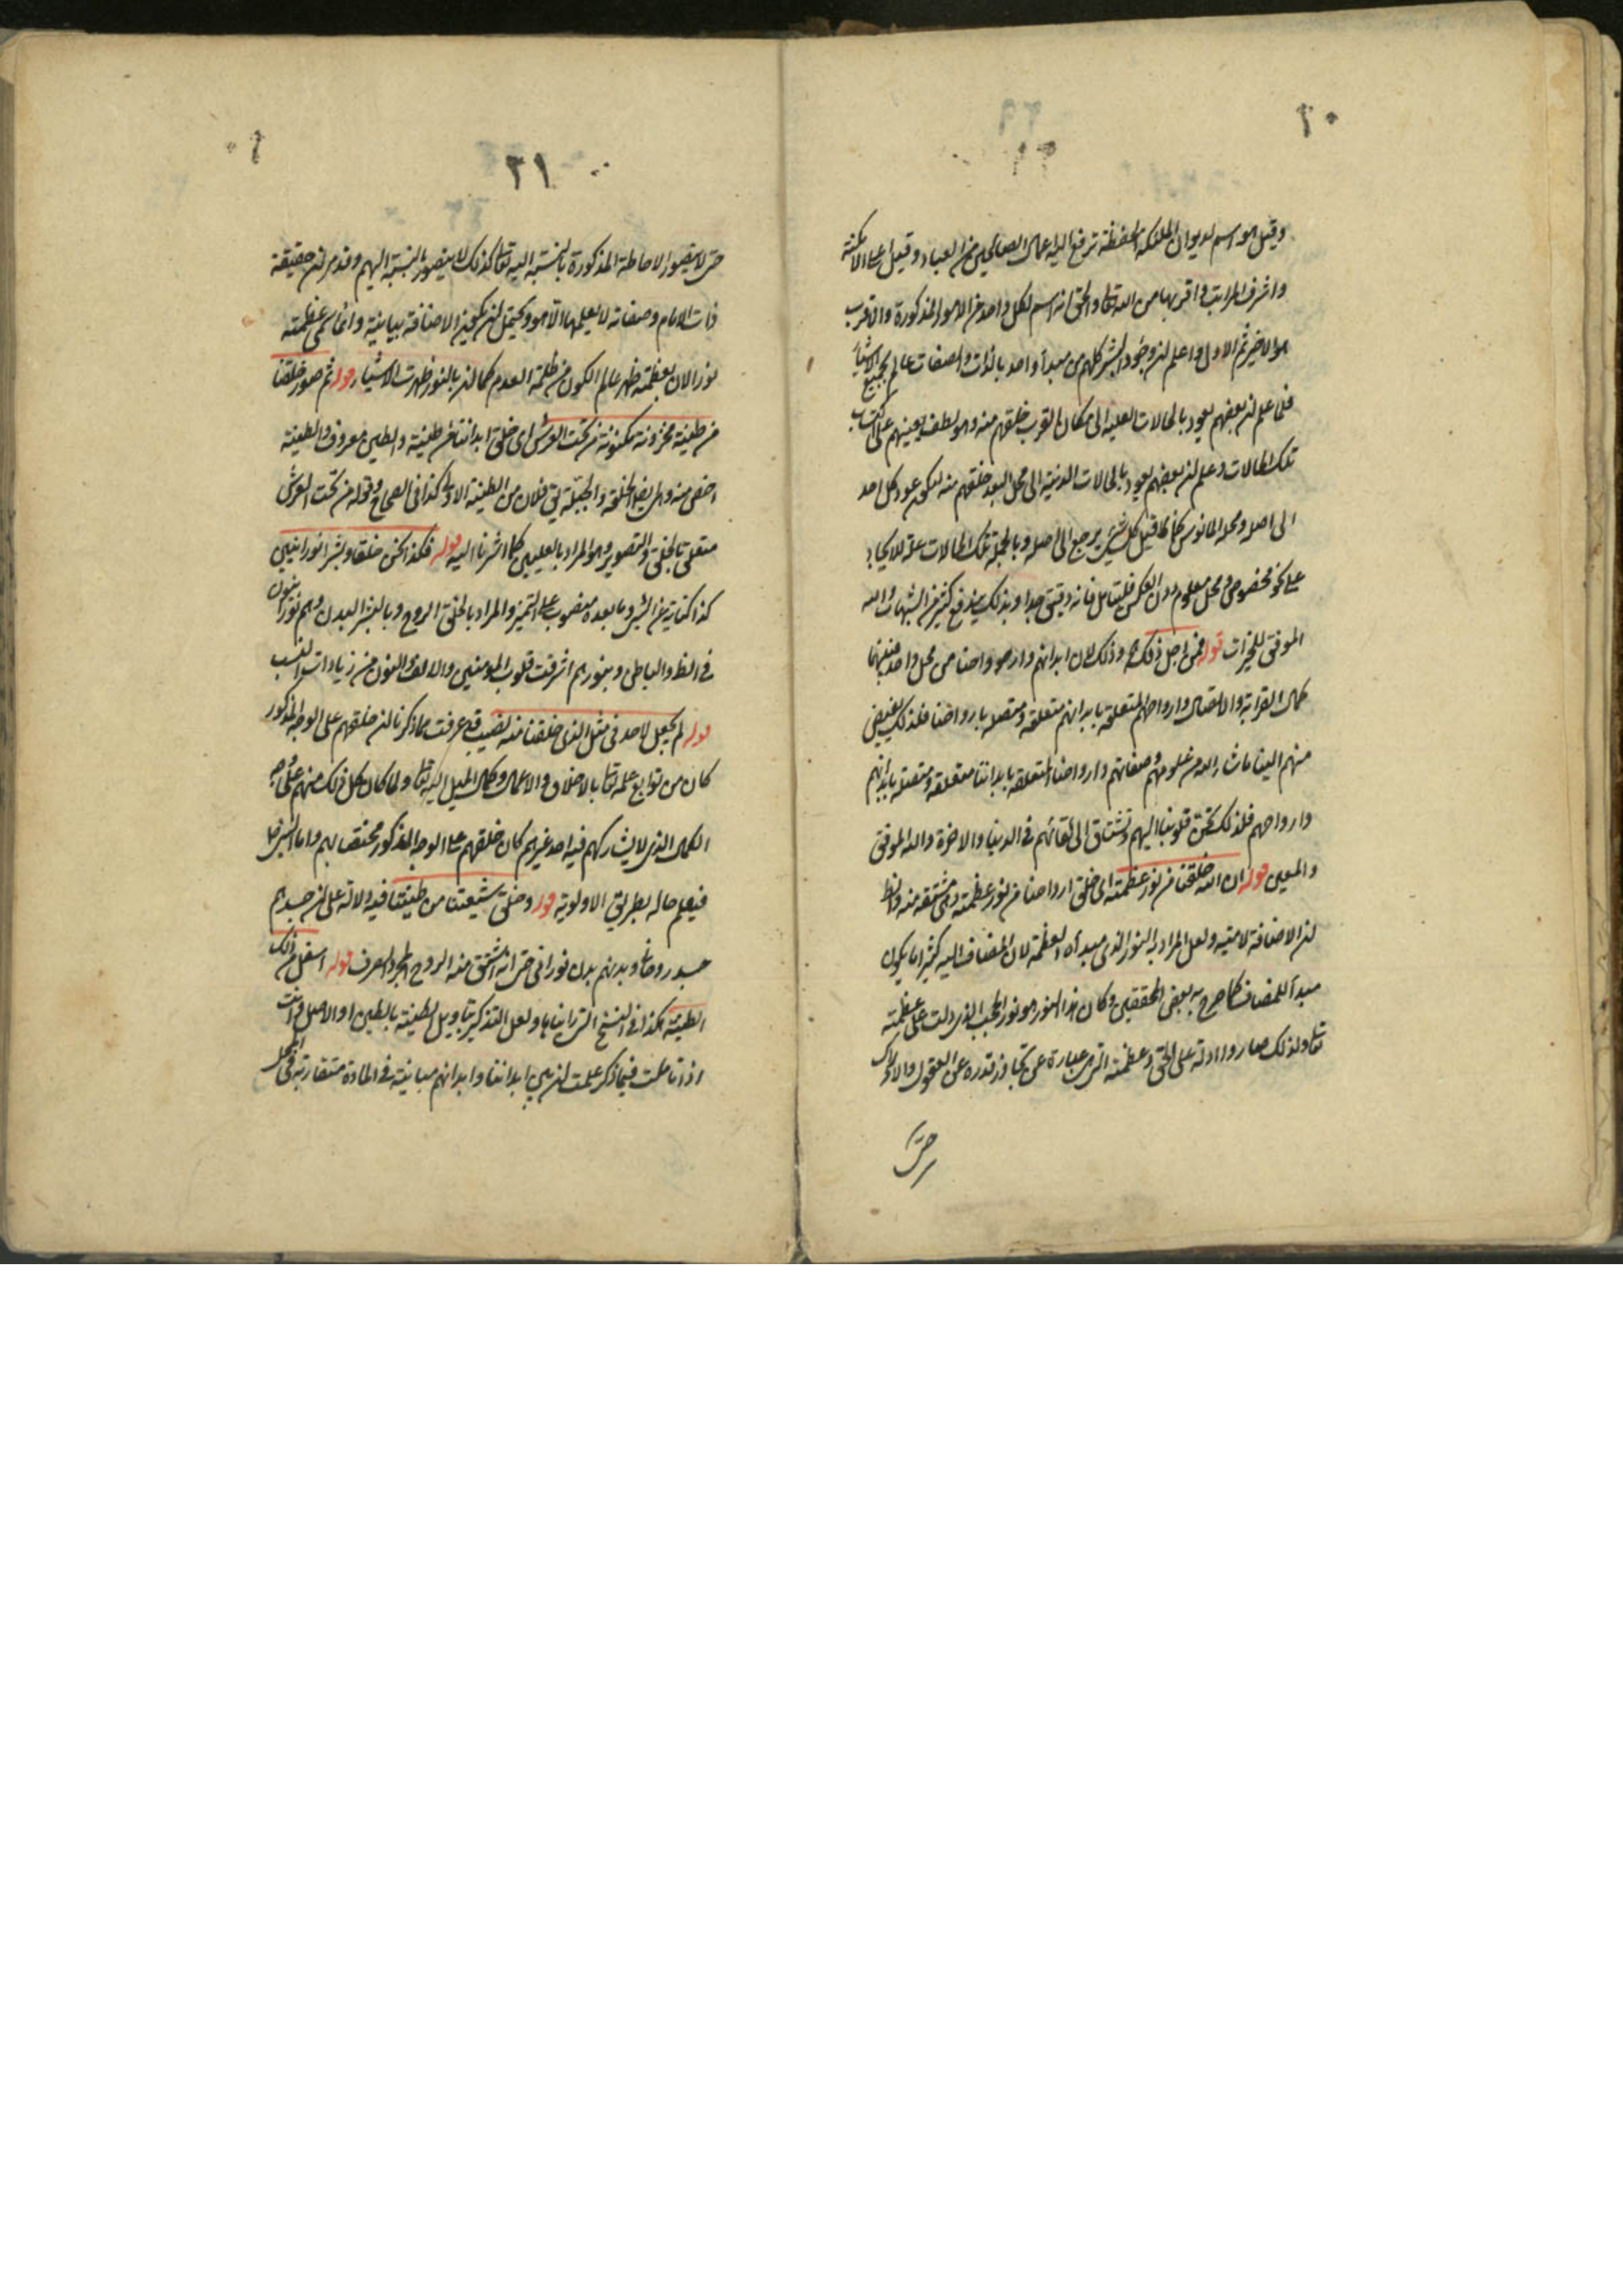 ٢٠
وقيل هو اسم لديوان الملئكة الحفظة ترفع اليه اعمال الصالحين من العباد وقيل اعلى الامكنة
واشرف المراتب واقربها من الله تعا والحق انه اسم لكل واحد من الامور المذكورة والاقرب
هو الاخير ثم الاول واعلم ان وجود البشر كلهم من مبدأ واحد بالذات والصفات عالم بجميع الاشياء
فلما علم ان بعضهم يعود بالحالات العلية الى مكان القرب خلقهم منه وهو لطف يعينهم على اكتساب
تلك الحالات وعلم ان بعضهم يعود بالحالات الدنية الى محل البعد خلقهم منه ليكون عود كل احد
الى اصله ومحله المانوس كما قيل كل شئ يرجع الى اصله وبالجملة تلك الحالات علة للايجاد
على نحو مخصوص ومحل معلوم دون العكس فليتامل فانه دقيق جدا وبذلك يندفع كثير من الشبهات والله
الموفق للخيرات قوله فمن اجل ذلك وذلك لان ابدانهم وارواحنا من محل واحد فبينهما
كمال القرابة والاتصال وارواحهم المتعلقة بابدانهم متعلقة ومتصلة بارواحنا فلذلك يفيض
منهم الينا ما شاء الله من علومهم وصفاتهم وارواحنا المتعلقة بابداننا متعلقة ومتصلة بابدانهم
وارواحهم فلذلك تحن قلوبنا اليهم وتشتاق الى لقائهم في الدنيا والاخرة والله الموفق
والمعين قوله ان الله خلقنا من نور عظمته اى خلق ارواحنا من نور عظمته وهى مشتقة منه والظ
ان الاضافة لامية ولعل المراد به النور الذى مبدأه العظمة لان المضاف اليه كثيرا ما يكون
مبدأ للمضاف كما صرح به بعض المحققين وكان هذا النور هو نور الحجب الذى دلت على عظمته
تعا ولذلك صاروا ادلة على الحق وعظمته التى هى عبارة عن تجاوز قدره عن العقول والادراك
حتى
٢١
حتى لا يتصور الاحاطة المذكورة بالنسبة اليه تعا كذلك لا يتصور بالنسبة اليهم وقد مر ان حقيقة
ذات الامام وصفاته لا يعلمها الا هو ويحتمل ان يكون الاضافة بيانية وانما سمى عظمته
نورا لان بعظمته ظهر عالم الكون من ظلمة العدم كما ان بالنور ظهرت الاشياء قوله ثم صور خلقنا
من طينة مخزونة مكنونة من تحت العرش اى خلق ابداننا من طينة والطين معروف والطينة
اخص منه وهى ايضا الخلقة والجبلة يق فلان من الطينة الاولى كذا فى الصحاح وقوله من تحت العرش
متعلق بالخلق والتصوير وهو المراد بالعليين كما اشرنا اليه قوله فكنا نحن خلقا وبشرا نورانيين
كذا كناية عن البشر وما بعده منصوب على التميز والمراد بالخلق الروح وبالبشر البدن وهم نورانيون
فى الظ والباطن وبنورهم اشرقت قلوب المومنين والالف والنون من زيادات النسب
قوله لم يجعل لاحد فى مثل الذى خلقنا منه نصيب قد عرفت مما ذكرنا ان خلقهم على الوجه المذكور
كان من توابع علمه تعا بالاخلاق والاعمال وكمال الميل اليه تعا ولما كان كل ذلك منهم على وجه
الكمال الذى لا يشاركهم فيه احد غيرهم كان خلقهم على الوجه المذكور مختصا بهم واما السرخا
فيعلم حاله بطريق الاولوية قوله وخلق شيعتنا من طينتنا فيه دلالة على ان جسدهم
جسد روحانى وبدنهم بدن نورانى حتى انه اشتق منه الروح المجرد الصرف قوله اسفل من ذلك
الطينة هكذا فى النسخ التى رايناها ولعل التذكير بتاويل الطينة بالطين او الاصل وانت
اذا تاملت فيما ذكر علمت ان بين ابداننا وابدانهم مباينة فى المادة متقاربة فى المحل